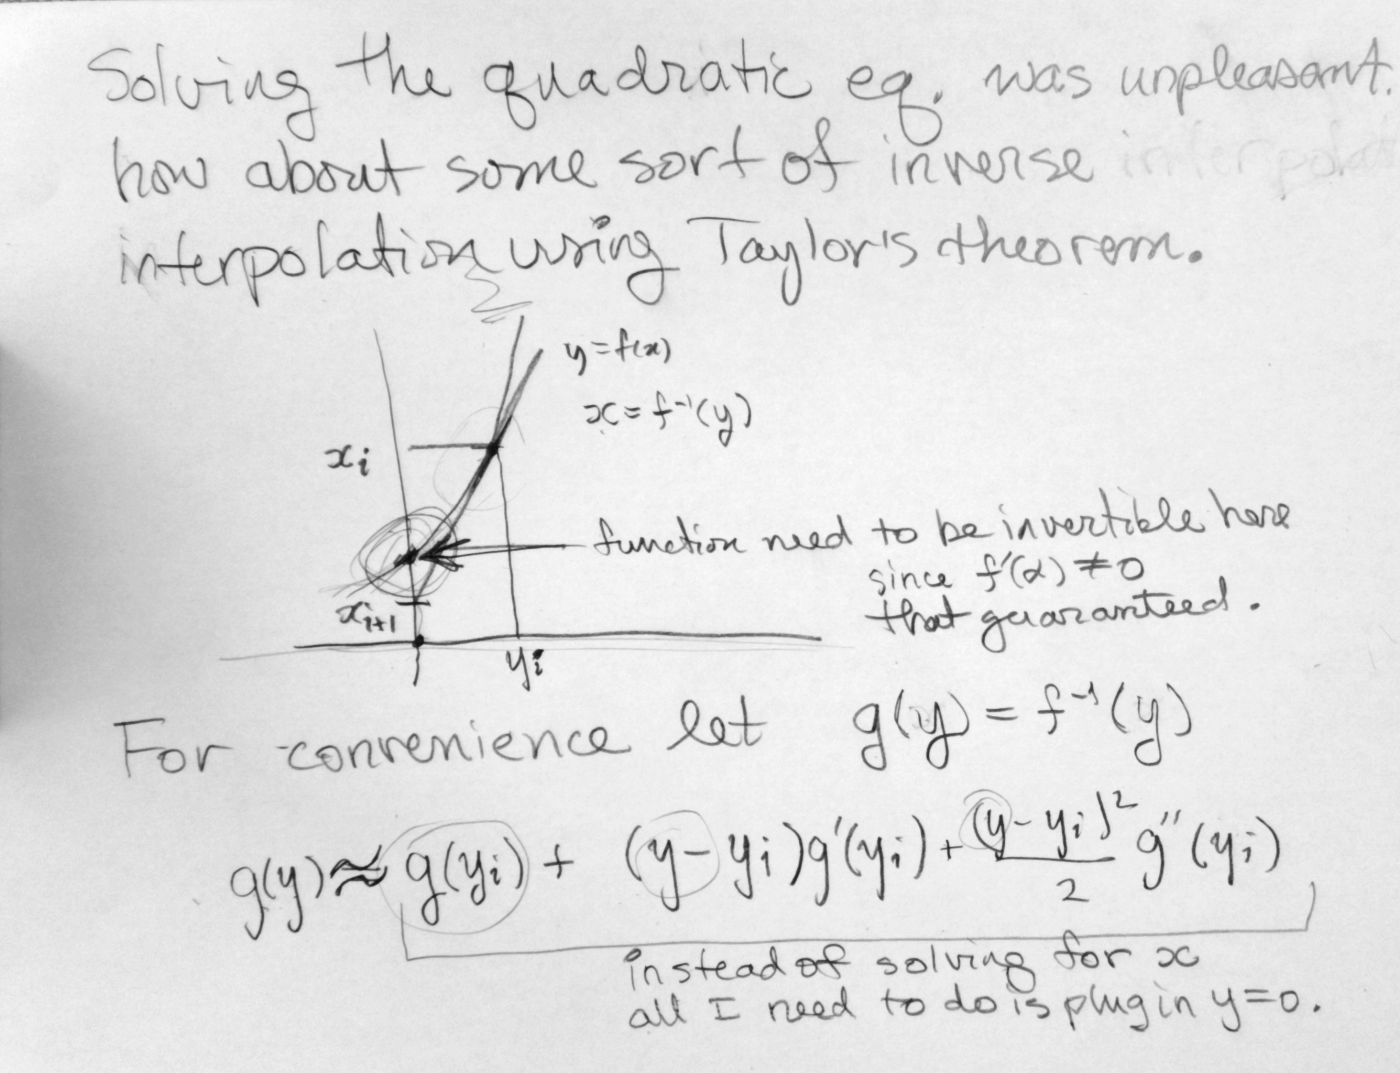 Solving the quadratic eq. was unpleasant.
how about some sort of inverse interpolat
interpolation using Taylor's theorem.
y=f(x)
x=f⁻¹(y)
xᵢ
function need to be invertible here
since f'(α)≠0
that guaranteed.
xᵢ₊₁
yᵢ
For convenience let g(y) = f⁻¹(y)
g(y)≈g(yᵢ) + (y-yᵢ)g'(yᵢ)+(y-yᵢ)²/2 g''(yᵢ)
instead of solving for x
all I need to do is plug in y=0.